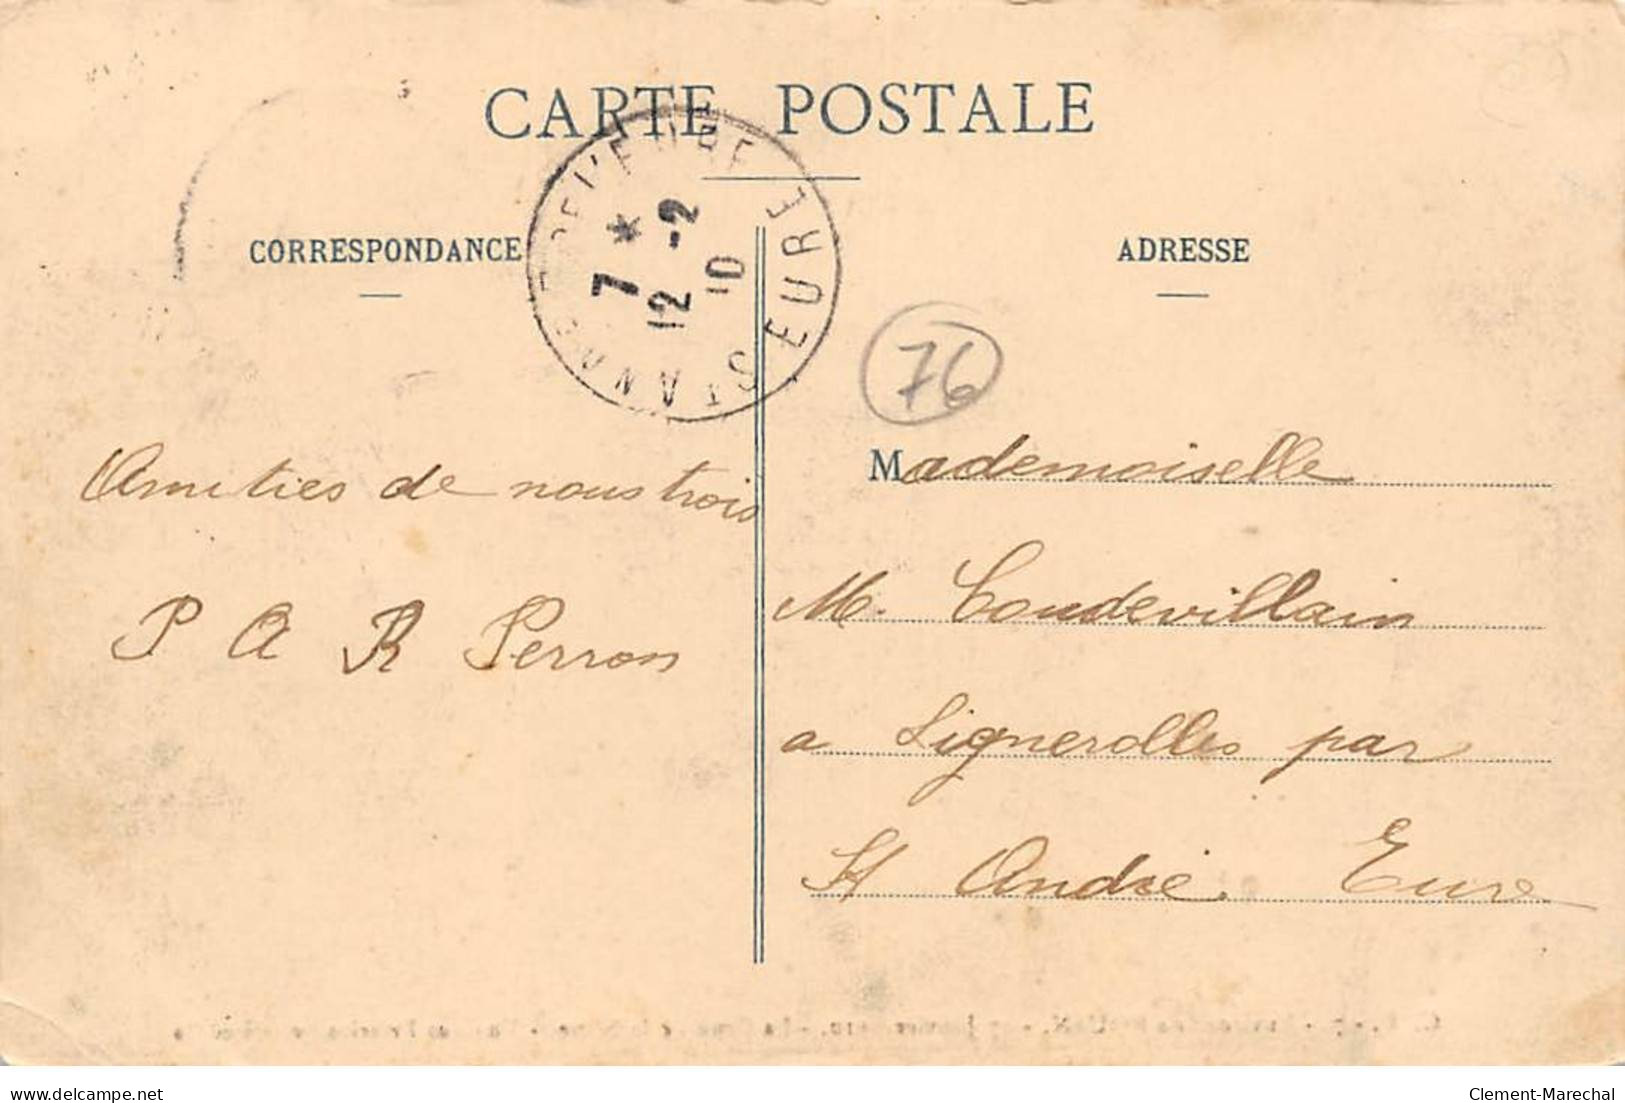 CARTE POSTALE
CORRESPONDANCE
ADRESSE
ST ANDRE DE L'EURE EURE
7 *
12 -2
10
76
Amities de nous trois
P A R Perron
Mademoiselle
M. Coudevillain
a Lignerolles par
St André Eure
delcampe.net
Clement-Marechal